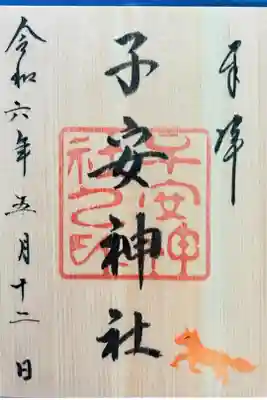 奉拝
子安神社
子安神
社之印
令和六年五月十二日